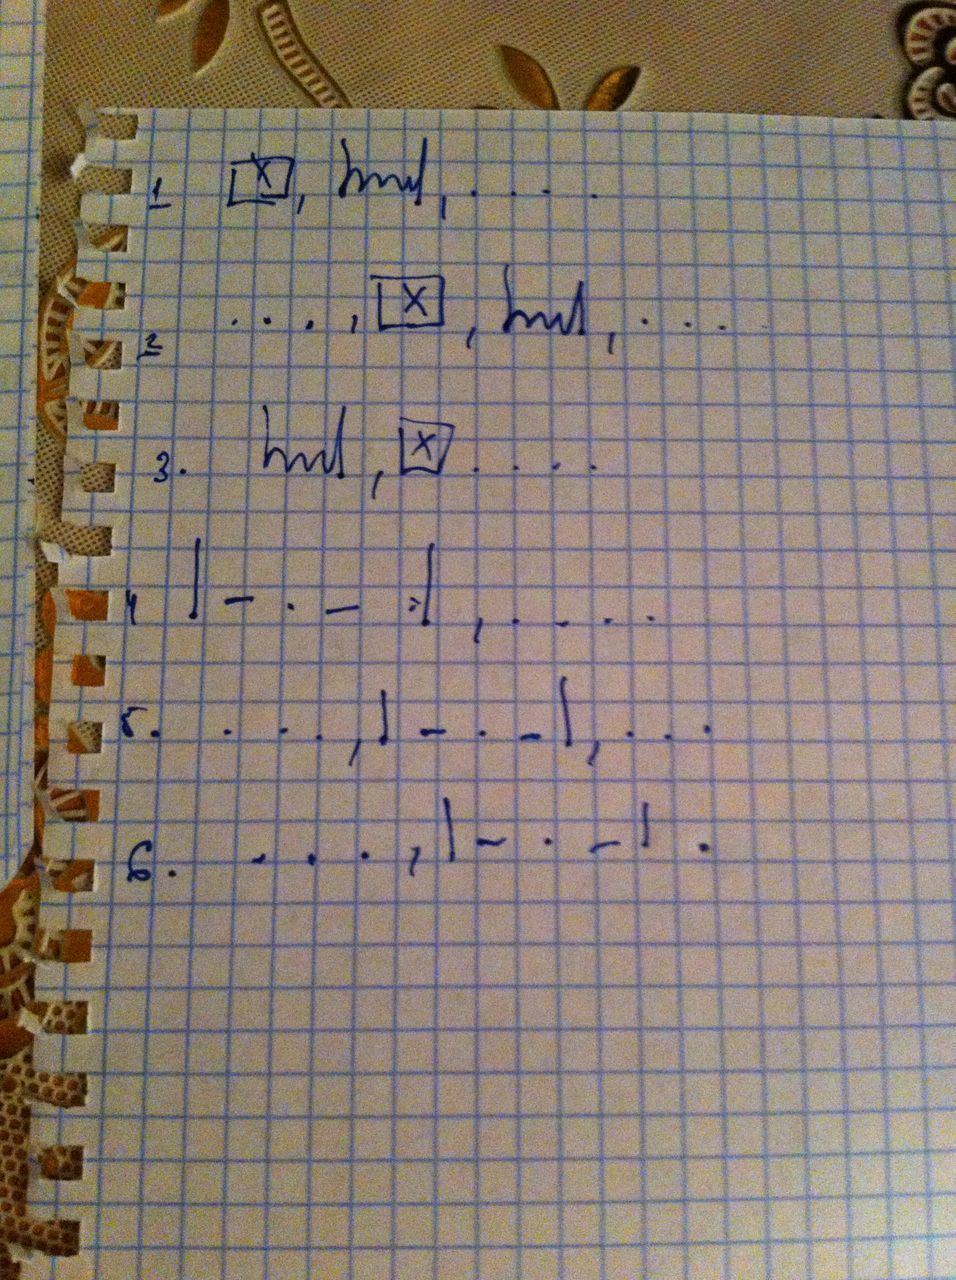 1 [X], |~~~|, ....
2 ..., [X], |~~~|, ...
3. |~~~|, [X] ....
4 | – . – . |, ....
5. ...., | – . – |, ...
6. ..., | – . – | .